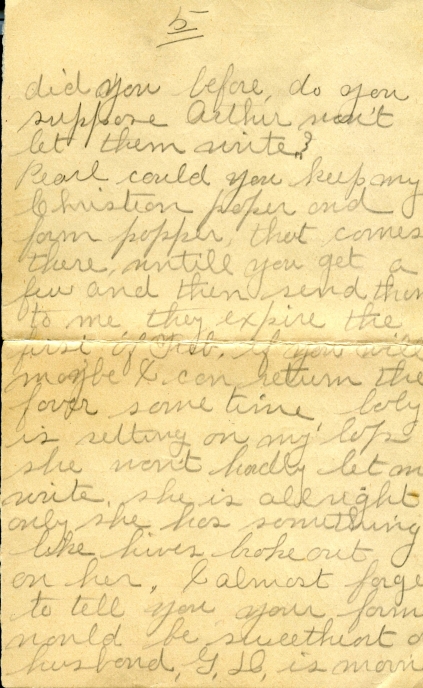 5
did you before, do you
suppose Arthur won't
let them write?
Pearl could you keep my
Christian paper and
farm popper, that comes
there, untill you get a
few and then send them
to me, they expire the
first of Feb. if you will
maybe I can return the
favor some time baby
is setting on my lop
she won't hadly let m
write. she is allright
only she has something
like hives broke out
on her. I almost forge
to tell you your form
would be sweethort o
husband, G. D. is morri